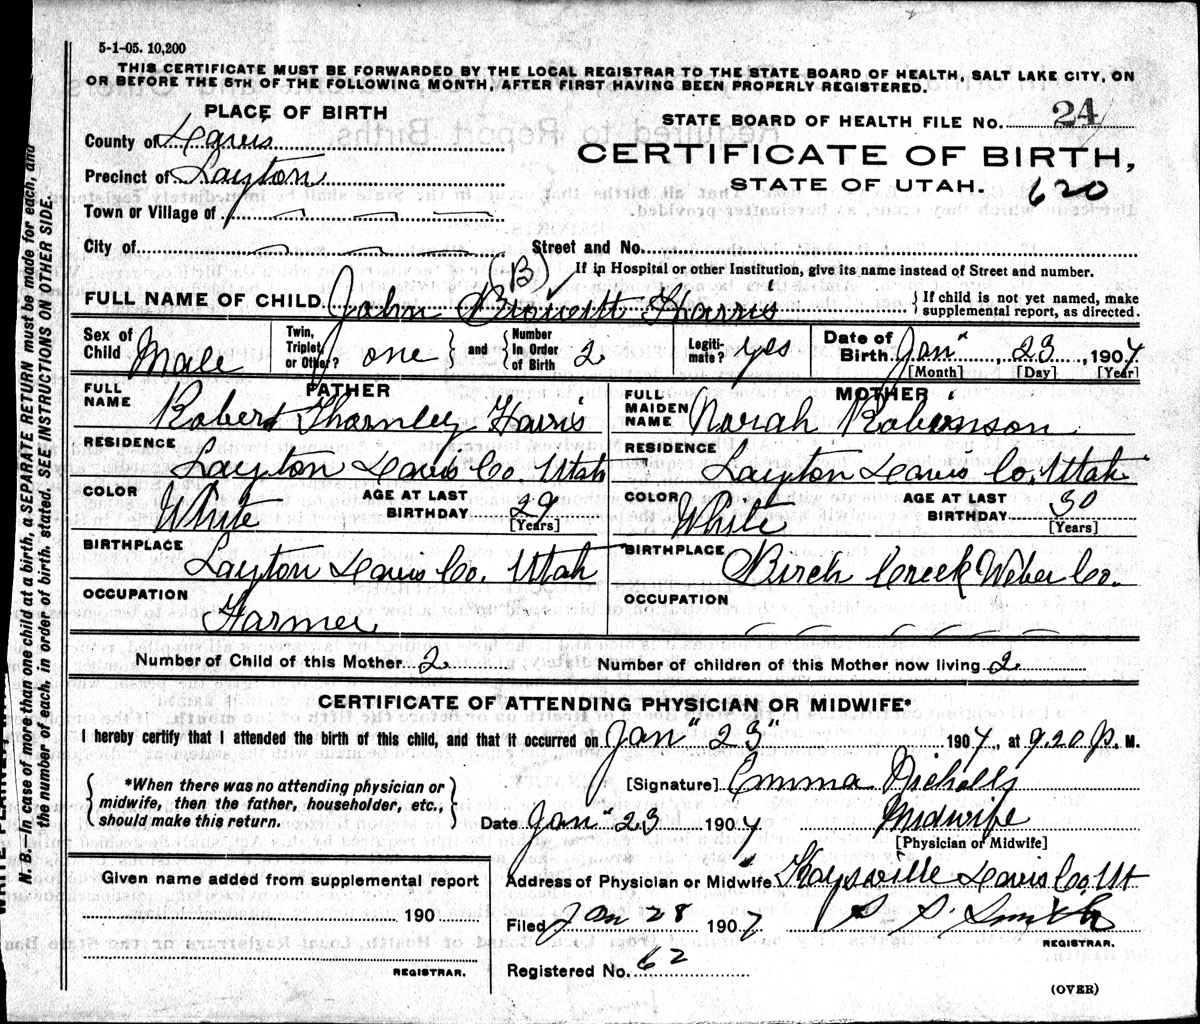 5-1-05. 10,200
THIS CERTIFICATE MUST BE FORWARDED BY THE LOCAL REGISTRAR TO THE STATE BOARD OF HEALTH, SALT LAKE CITY, ON
OR BEFORE THE 5TH OF THE FOLLOWING MONTH, AFTER FIRST HAVING BEEN PROPERLY REGISTERED.
PLACE OF BIRTH
County of Davis
Precinct of Layton
Town or Village of
City of
Street and No.
STATE BOARD OF HEALTH FILE No. 24
CERTIFICATE OF BIRTH,
STATE OF UTAH.
620
If in Hospital or other Institution, give its name instead of Street and number.
(B)
FULL NAME OF CHILD. John Harris
If child is not yet named, make
supplemental report, as directed.
Sex of Child Male
Twin, Triplet, or Other? one and Number In Order of Birth 2
Legitimate? yes
Date of Birth Jan" 23, 1907
[Month] [Day] [Year]
FATHER
FULL NAME Robert Thornley Harris
RESIDENCE Layton Davis Co. Utah
COLOR White AGE AT LAST BIRTHDAY 29 [Years]
BIRTHPLACE Layton Davis Co. Utah
OCCUPATION Farmer
MOTHER
FULL MAIDEN NAME Norah Robinson
RESIDENCE Layton Davis Co. Utah
COLOR White AGE AT LAST BIRTHDAY 30 [Years]
BIRTHPLACE Birch Creek Weber Co.
OCCUPATION
Number of Child of this Mother 2 Number of children of this Mother now living 2
CERTIFICATE OF ATTENDING PHYSICIAN OR MIDWIFE*
I hereby certify that I attended the birth of this child, and that it occurred on Jan" 23" 1907, at 9.20 P. M.
*When there was no attending physician or
midwife, then the father, householder, etc.,
should make this return.
[Signature] Emma Nicholls
Date Jan" 23 1907 Midwife
[Physician or Midwife]
Given name added from supplemental report
190
REGISTRAR.
Address of Physician or Midwife Kaysville Davis Co. Ut
Filed Jan 28 1907 S. S. Smith
REGISTRAR.
Registered No. 62
(OVER)
N. B.—In case of more than one child at a birth, a SEPARATE RETURN must be made for each, and
the number of each, in order of birth, stated. SEE INSTRUCTIONS ON OTHER SIDE.